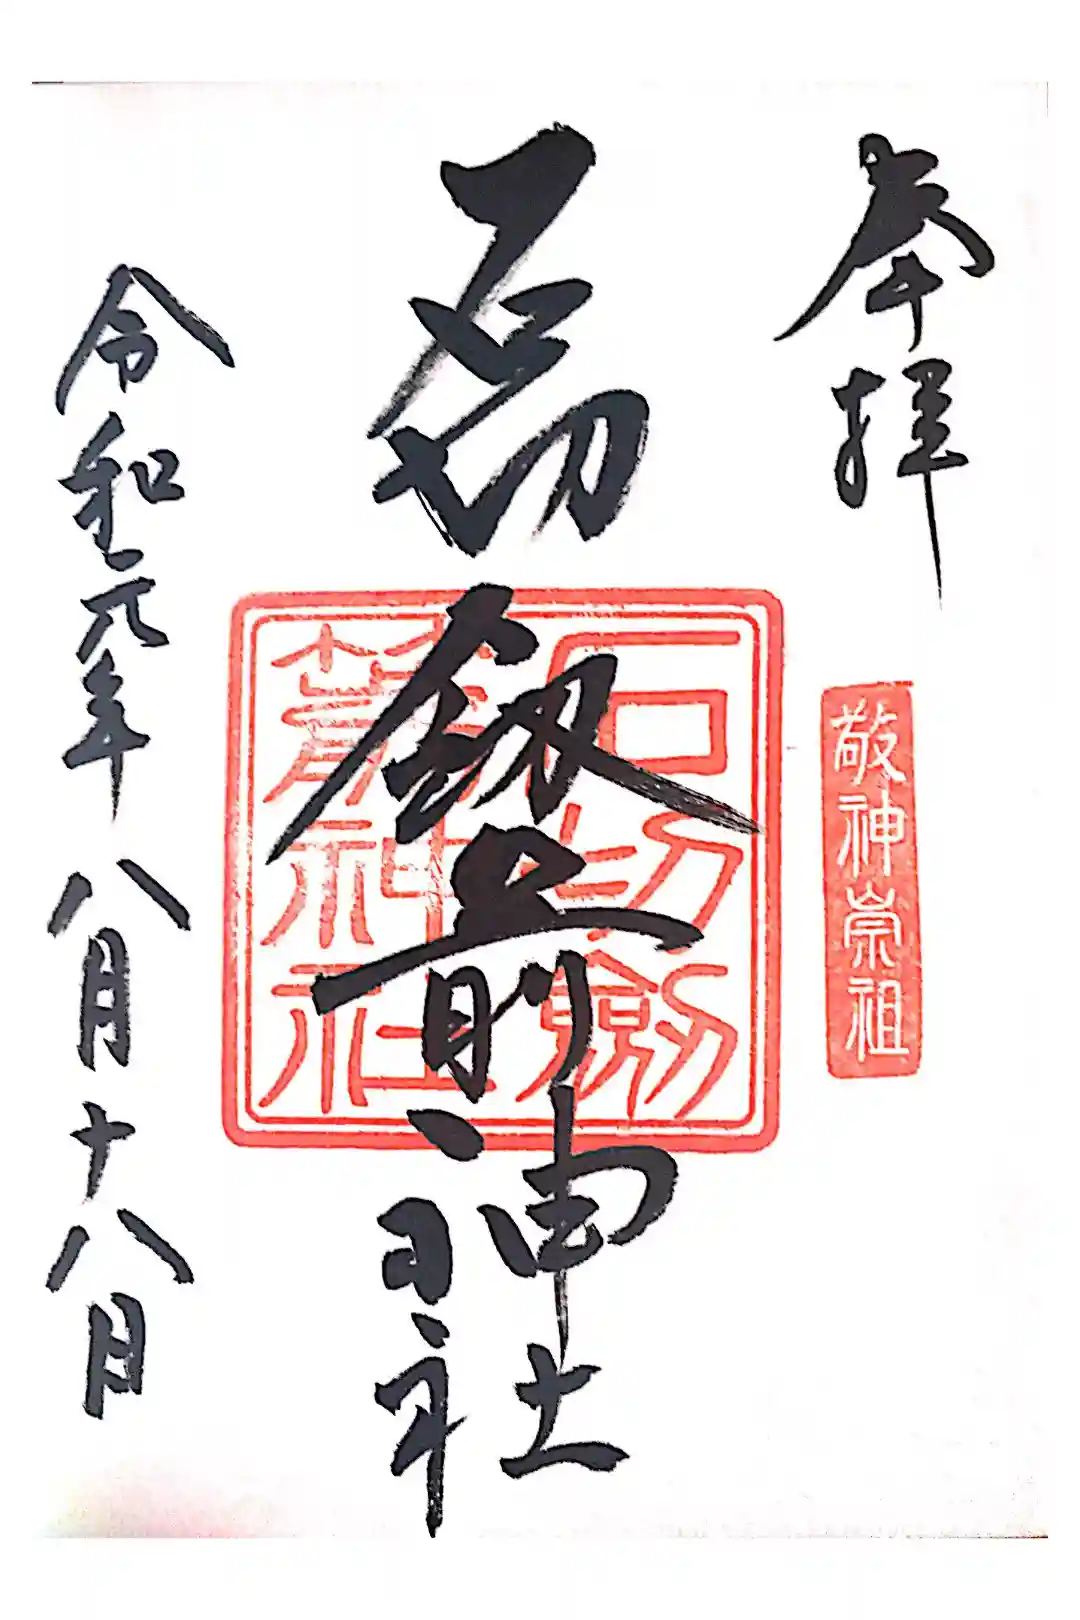 奉拝
敬神崇祖
石切劔箭神社
石切劔
箭神社
令和元年八月十八日